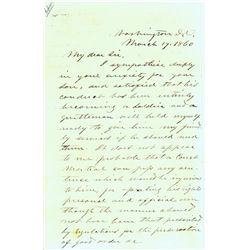 Washington D.C.
March 17. 1860
My dear Sir,
I sympathise deeply
in your anxiety for your
son, and satisfied that his
conduct has been entirely
becoming a soldier and a
gentleman will hold myself
ready to give him my
services if he should need
them. It does not appear
to me probable that a Court
Martial can pass any sen
tence which would be injurious
to him for his
personal and official
though the manner should
not have been that presented
by regulations for the preservation
of good order &c